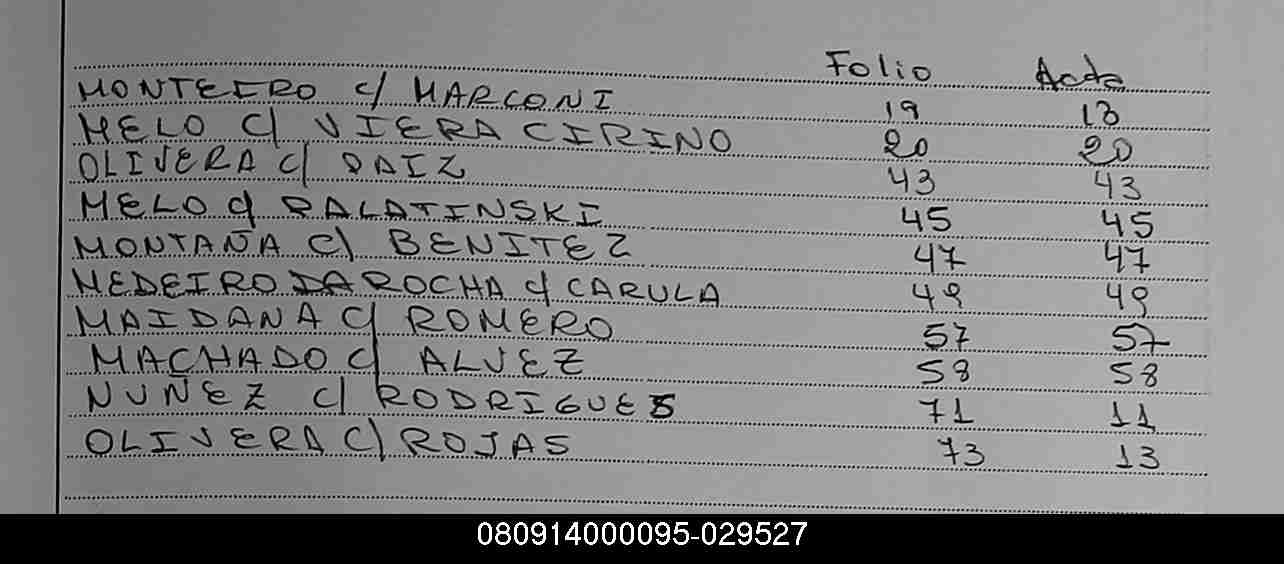 Folio Acta
MONTEIRO c/ MARCONI 19 18
MELO c/ VIERA CIRINO 20 20
OLIVERA c/ PAIZ 43 43
MELO c/ PALATINSKI 45 45
MONTAÑA c/ BENITEZ 47 47
MEDEIRO DA ROCHA c/ CARULA 49 49
MAIDANA c/ ROMERO 57 57
MACHADO c/ ALVEZ 58 58
NUÑEZ c/ RODRIGUES 71 11
OLIVERA c/ ROJAS 73 13
080914000095-029527